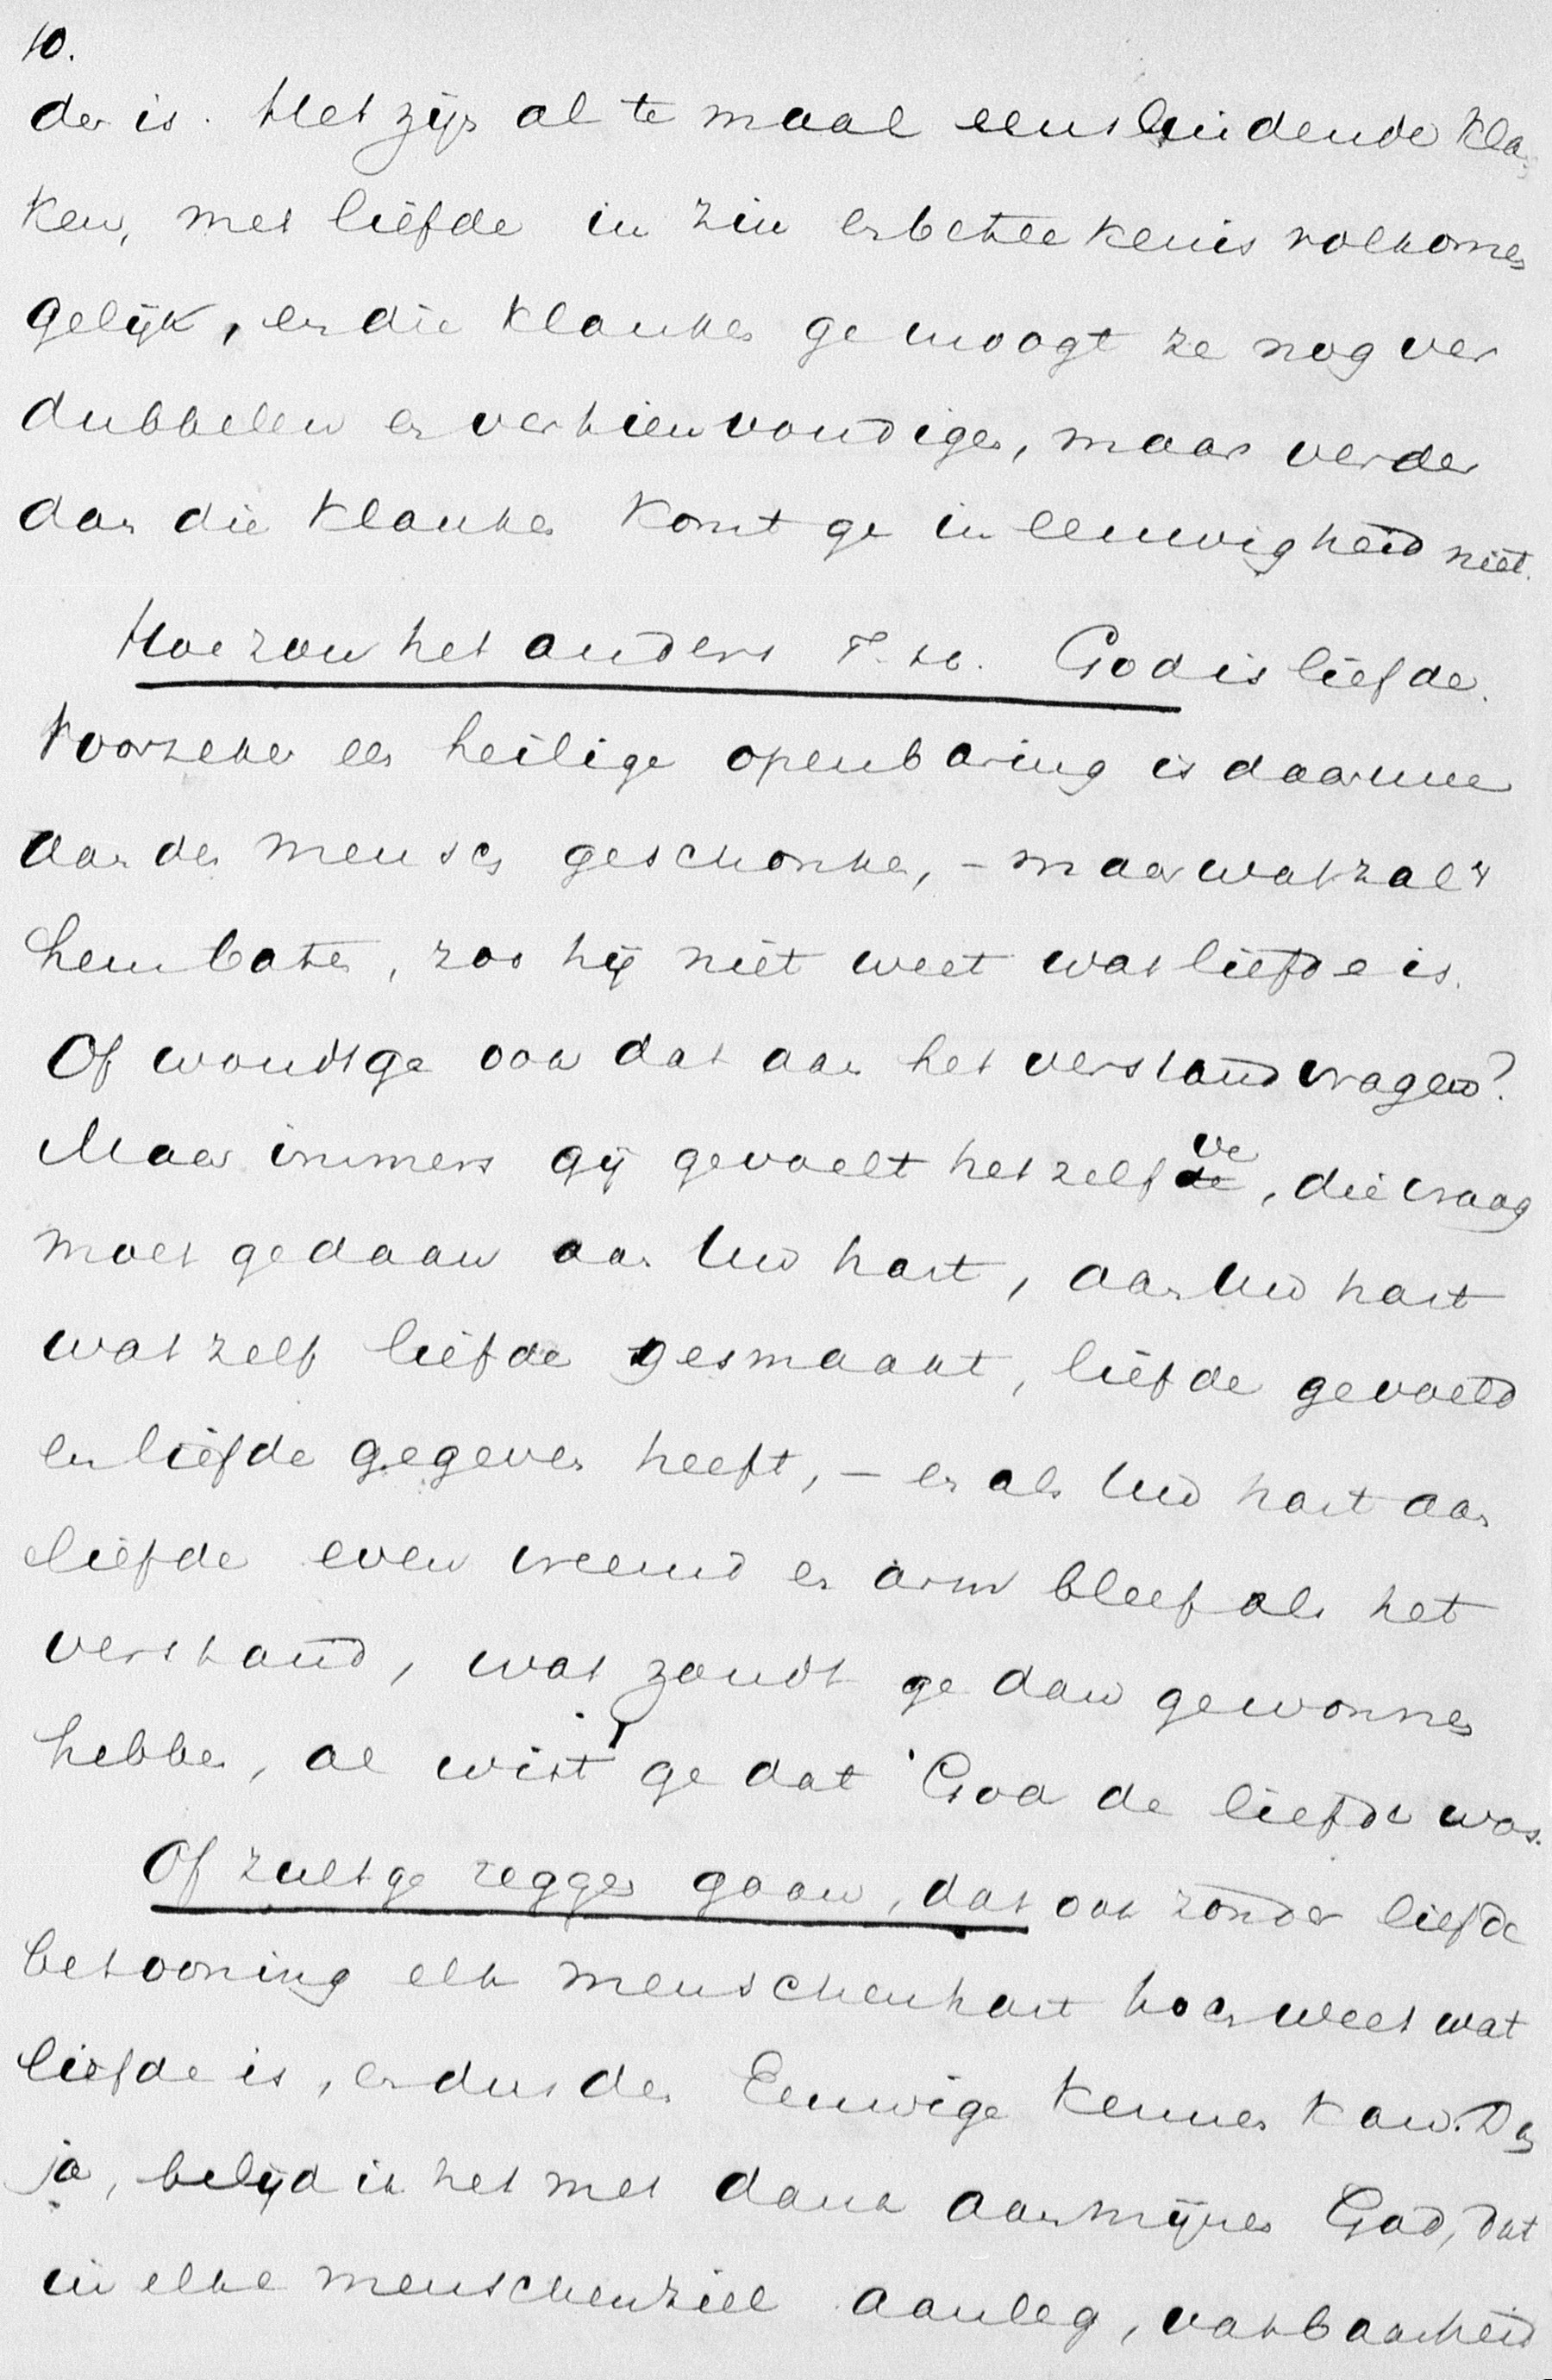 10.
der is. Het zijn al te maal eensluidende klan
ken, met liefde in zin en beteekenis volkomen
gelijk, en die klanken ge moogt ze nog ver
dubbelen en vertienvoudigen, maar verder
dan die klanken komt ge in eeuwigheid niet.
Hoe zou het anders T. H. God is liefde.
Voorzeker een heilige openbaring is daarmee
aan den mensch geschonken, – maar wat zal 't
hem baten, zoo hij niet weet wat liefde is.
Of woudt ge ook dat aan het verstand vragen?
Maar immers gij gevoelt het zelf de ve, die vraag
moet gedaan aan Uw hart, aan Uw hart
wat zelf liefde gesmaakt, liefde gevoeld
en liefde gegeven heeft, – en als Uw hart aan
liefde even vreemd en arm bleef als het
verstand, wat zoudt ge dan gewonnen
hebben, al wist ge dat God de liefde was.
Of zult ge zeggen gaan, dat ook zonder liefde
betooning elk menschenhart toch weet wat
liefde is, en dus den Eeuwige kennen kan. Dan
ja, belijd ik het met dank aan mijnen God, dat
in elke menschenziel aanleg, vatbaarheid